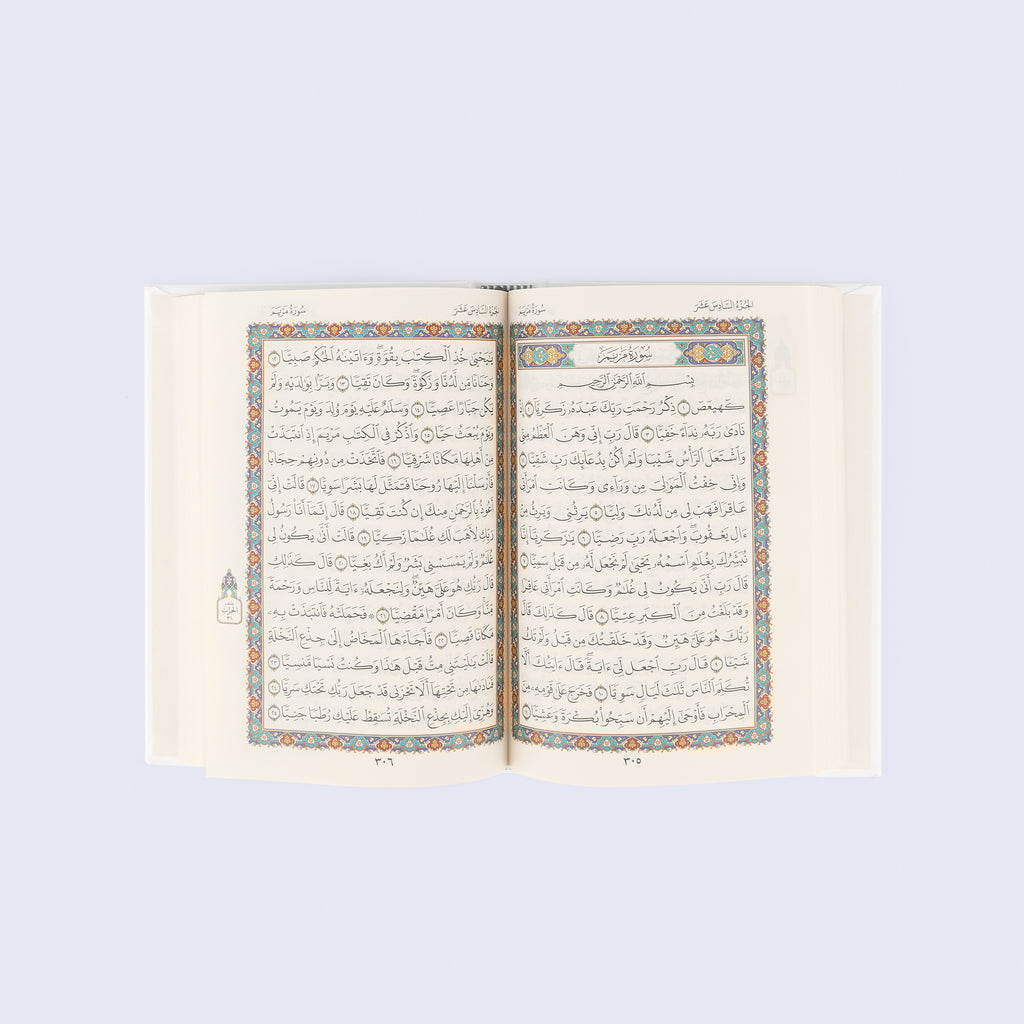 الجزء السادس عشر
سورة مريم
سُورَةُ مَرْيَمَ
بِسْمِ ٱللَّهِ ٱلرَّحْمَٰنِ ٱلرَّحِيمِ
كٓهيعٓصٓ ١ ذِكْرُ رَحْمَتِ رَبِّكَ عَبْدَهُۥ زَكَرِيَّآ ٢ إِذْ
نَادَىٰ رَبَّهُۥ نِدَآءً خَفِيًّا ٣ قَالَ رَبِّ إِنِّى وَهَنَ ٱلْعَظْمُ مِنِّى
وَٱشْتَعَلَ ٱلرَّأْسُ شَيْبًا وَلَمْ أَكُنۢ بِدُعَآئِكَ رَبِّ شَقِيًّا ٤
وَإِنِّى خِفْتُ ٱلْمَوَٰلِىَ مِن وَرَآءِى وَكَانَتِ ٱمْرَأَتِى
عَاقِرًا فَهَبْ لِى مِن لَّدُنكَ وَلِيًّا ٥ يَرِثُنِى وَيَرِثُ مِنْ
ءَالِ يَعْقُوبَ ۖ وَٱجْعَلْهُ رَبِّ رَضِيًّا ٦ يَٰزَكَرِيَّآ إِنَّا
نُبَشِّرُكَ بِغُلَٰمٍ ٱسْمُهُۥ يَحْيَىٰ لَمْ نَجْعَل لَّهُۥ مِن قَبْلُ سَمِيًّا ٧
قَالَ رَبِّ أَنَّىٰ يَكُونُ لِى غُلَٰمٌ وَكَانَتِ ٱمْرَأَتِى عَاقِرًا
وَقَدْ بَلَغْتُ مِنَ ٱلْكِبَرِ عِتِيًّا ٨ قَالَ كَذَٰلِكَ قَالَ
رَبُّكَ هُوَ عَلَىَّ هَيِّنٌ وَقَدْ خَلَقْتُكَ مِن قَبْلُ وَلَمْ تَكُ
شَيْـًٔا ٩ قَالَ رَبِّ ٱجْعَل لِّىٓ ءَايَةً ۚ قَالَ ءَايَتُكَ أَلَّا
تُكَلِّمَ ٱلنَّاسَ ثَلَٰثَ لَيَالٍ سَوِيًّا ١٠ فَخَرَجَ عَلَىٰ قَوْمِهِۦ مِنَ
ٱلْمِحْرَابِ فَأَوْحَىٰٓ إِلَيْهِمْ أَن سَبِّحُوا۟ بُكْرَةً وَعَشِيًّا ١١
٣٠٥
الجزء السادس عشر
سورة مريم
يَٰيَحْيَىٰ خُذِ ٱلْكِتَٰبَ بِقُوَّةٍ ۖ وَءَاتَيْنَٰهُ ٱلْحُكْمَ صَبِيًّا ١٢
وَحَنَانًا مِّن لَّدُنَّا وَزَكَوٰةً ۖ وَكَانَ تَقِيًّا ١٣ وَبَرًّۢا بِوَٰلِدَيْهِ وَلَمْ
يَكُن جَبَّارًا عَصِيًّا ١٤ وَسَلَٰمٌ عَلَيْهِ يَوْمَ وُلِدَ وَيَوْمَ يَمُوتُ
وَيَوْمَ يُبْعَثُ حَيًّا ١٥ وَٱذْكُرْ فِى ٱلْكِتَٰبِ مَرْيَمَ إِذِ ٱنتَبَذَتْ
مِنْ أَهْلِهَا مَكَانًا شَرْقِيًّا ١٦ فَٱتَّخَذَتْ مِن دُونِهِمْ حِجَابًا
فَأَرْسَلْنَآ إِلَيْهَا رُوحَنَا فَتَمَثَّلَ لَهَا بَشَرًا سَوِيًّا ١٧ قَالَتْ إِنِّىٓ
أَعُوذُ بِٱلرَّحْمَٰنِ مِنكَ إِن كُنتَ تَقِيًّا ١٨ قَالَ إِنَّمَآ أَنَا۠ رَسُولُ
رَبِّكِ لِأَهَبَ لَكِ غُلَٰمًا زَكِيًّا ١٩ قَالَتْ أَنَّىٰ يَكُونُ لِى
غُلَٰمٌ وَلَمْ يَمْسَسْنِى بَشَرٌ وَلَمْ أَكُ بَغِيًّا ٢٠ قَالَ كَذَٰلِكِ
قَالَ رَبُّكِ هُوَ عَلَىَّ هَيِّنٌ ۖ وَلِنَجْعَلَهُۥٓ ءَايَةً لِّلنَّاسِ وَرَحْمَةً
مِّنَّا ۚ وَكَانَ أَمْرًا مَّقْضِيًّا ٢١ ۞ فَحَمَلَتْهُ فَٱنتَبَذَتْ بِهِۦ
مَكَانًا قَصِيًّا ٢٢ فَأَجَآءَهَا ٱلْمَخَاضُ إِلَىٰ جِذْعِ ٱلنَّخْلَةِ
قَالَتْ يَٰلَيْتَنِى مِتُّ قَبْلَ هَٰذَا وَكُنتُ نَسْيًا مَّنسِيًّا ٢٣
فَنَادَىٰهَا مِن تَحْتِهَآ أَلَّا تَحْزَنِى قَدْ جَعَلَ رَبُّكِ تَحْتَكِ سَرِيًّا ٢٤
وَهُزِّىٓ إِلَيْكِ بِجِذْعِ ٱلنَّخْلَةِ تُسَٰقِطْ عَلَيْكِ رُطَبًا جَنِيًّا ٢٥
الحزب
٣١
٣٠٦